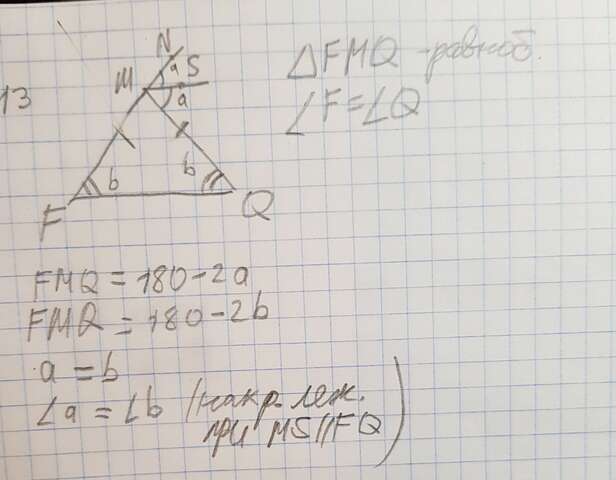 13
N
M a S
a
b b
F Q
△FMQ -равноб.
∠F=∠Q
FMQ = 180-2a
FMQ = 180-2b
a = b
∠a = ∠b (накр. леж.
при MS||FQ)